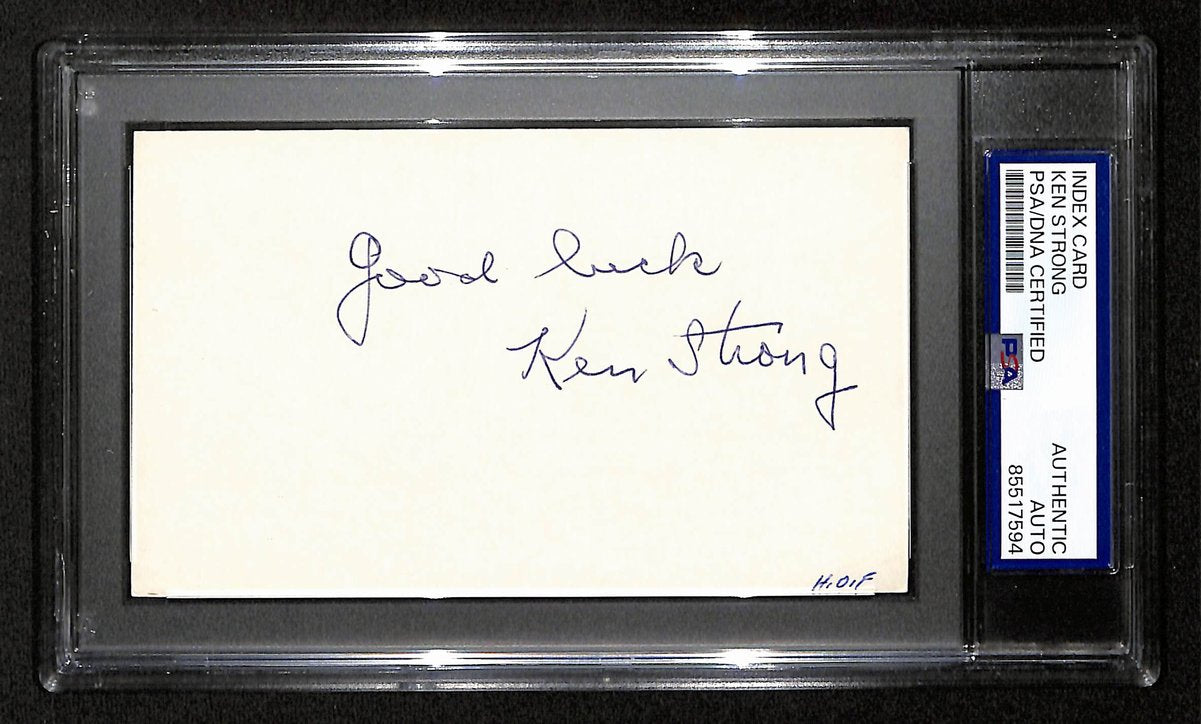 Good luck
Ken Strong
H.O.F
INDEX CARD
KEN STRONG
PSA/DNA CERTIFIED
PSA
AUTHENTIC
AUTO
85517594